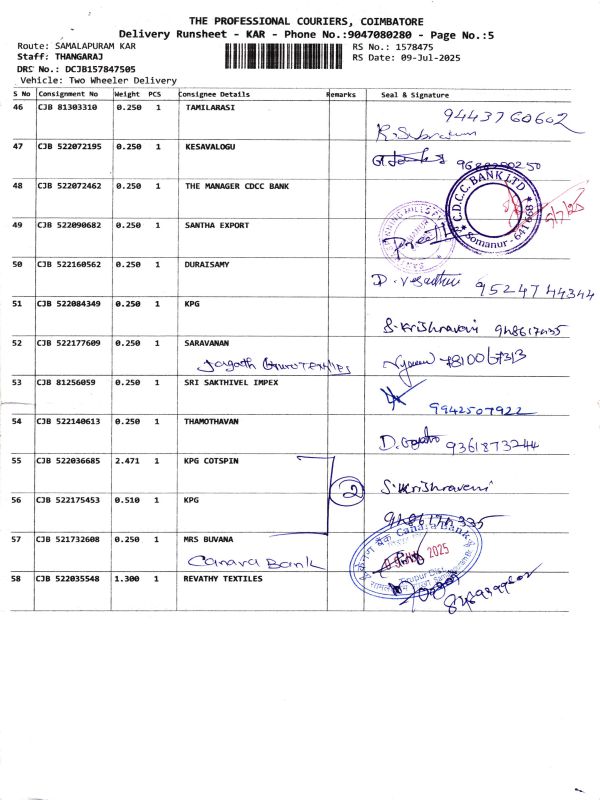 THE PROFESSIONAL COURIERS, COIMBATORE
Delivery Runsheet - KAR - Phone No.:9047080280 - Page No.:5
Route: SAMALAPURAM KAR RS No.: 1578475
Staff: THANGARAJ RS Date: 09-Jul-2025
DRS No.: DCJB157847505
Vehicle: Two Wheeler Delivery
S No Consignment No Weight PCS Consignee Details Remarks Seal & Signature
46 CJB 81303310 0.250 1 TAMILARASI 9443760602
47 CJB 522072195 0.250 1 KESAVALOGU
48 CJB 522072462 0.250 1 THE MANAGER CDCC BANK C.D.C.C. BANK LTD Somanur - 641 668
49 CJB 522090682 0.250 1 SANTHA EXPORT
50 CJB 522160562 0.250 1 DURAISAMY 9524744344
51 CJB 522084349 0.250 1 KPG S.Krishraveni
52 CJB 522177609 0.250 1 SARAVANAN 7810067313
53 CJB 81256059 0.250 1 SRI SAKTHIVEL IMPEX 9942507922
54 CJB 522140613 0.250 1 THAMOTHAVAN 9361873244
55 CJB 522036685 2.471 1 KPG COTSPIN 2 S.Krishraveni
56 CJB 522175453 0.510 1 KPG
57 CJB 521732608 0.250 1 MRS BUVANA
Canara Bank Canara Bank 2025 Tirupur Dist
58 CJB 522035548 1.300 1 REVATHY TEXTILES